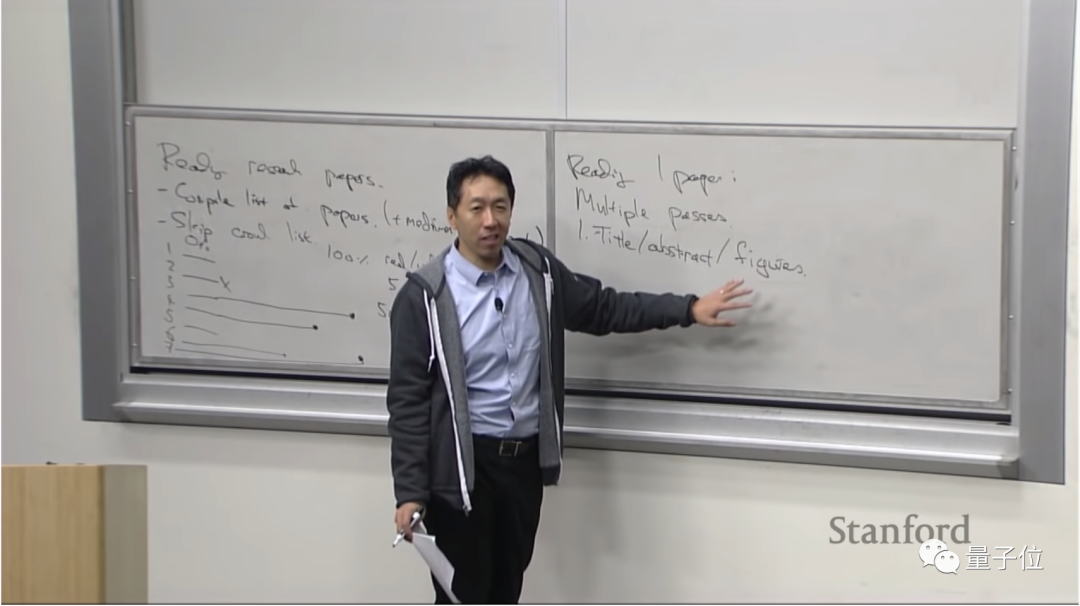 Reading research papers.
- Compile list of papers. (+ medium
- Skip around list.
0%
100%
1
2
3 x
4
5
6
7
5
5
Reading 1 paper:
Multiple passes
1. Title/abstract/figures.
Stanford
量子位